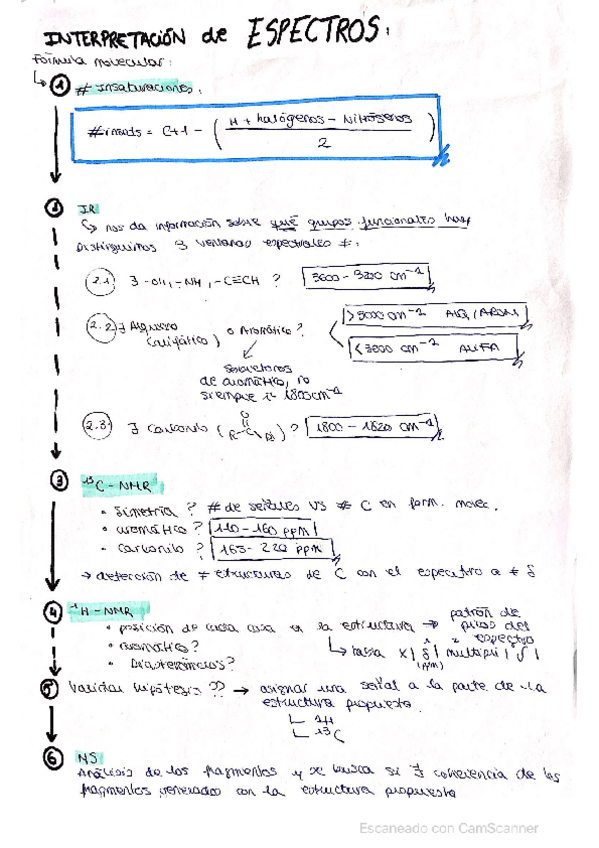 INTERPRETACIÓN de ESPECTROS:
Fórmula molecular:
① # Insaturaciones:
#insats = C+1 - ( H + halógenos - Nitrógenos / 2 )
② IR
↳ nos da información sobre qué grupos funcionales hay
Distinguimos 3 ventanas espectrales ≠:
2.1 ∃ -OH, -NH, -C≡CH ? 3600 - 3200 cm⁻¹
2.2 ∃ Alqueno o Aromático? >3000 cm⁻¹ ALQ/AROM
(alifático) <3000 cm⁻¹ ALIFA
sobretonos
de aromático, no
siempre 1800cm⁻¹
2.3 ∃ Carbonilo (R-C-R) ? 1800 - 1620 cm⁻¹
O
③ ¹³C-NMR
• Simetría ? # de señales vs # C en form. molec.
• aromático ? 110 - 160 ppm
• Carbonilo ? 165 - 220 ppm
→ detección de ≠ estructuras de C con el espectro a ≠ δ
④ ¹H-NMR
• posición de cada cosa en la estructura → patrón de
picos del
espectro
• aromático? ↳ tabla X | δ | multipli | ∫ |
(ppm)
• Diasterómicos?
⑤ Validar hipótesis ?? → asignar una señal a la parte de la
estructura propuesta
¹H
¹³C
⑥ MS
Análisis de los fragmentos y se busca si ∃ coherencia de los
fragmentos generados con la estructura propuesta
Escaneado con CamScanner